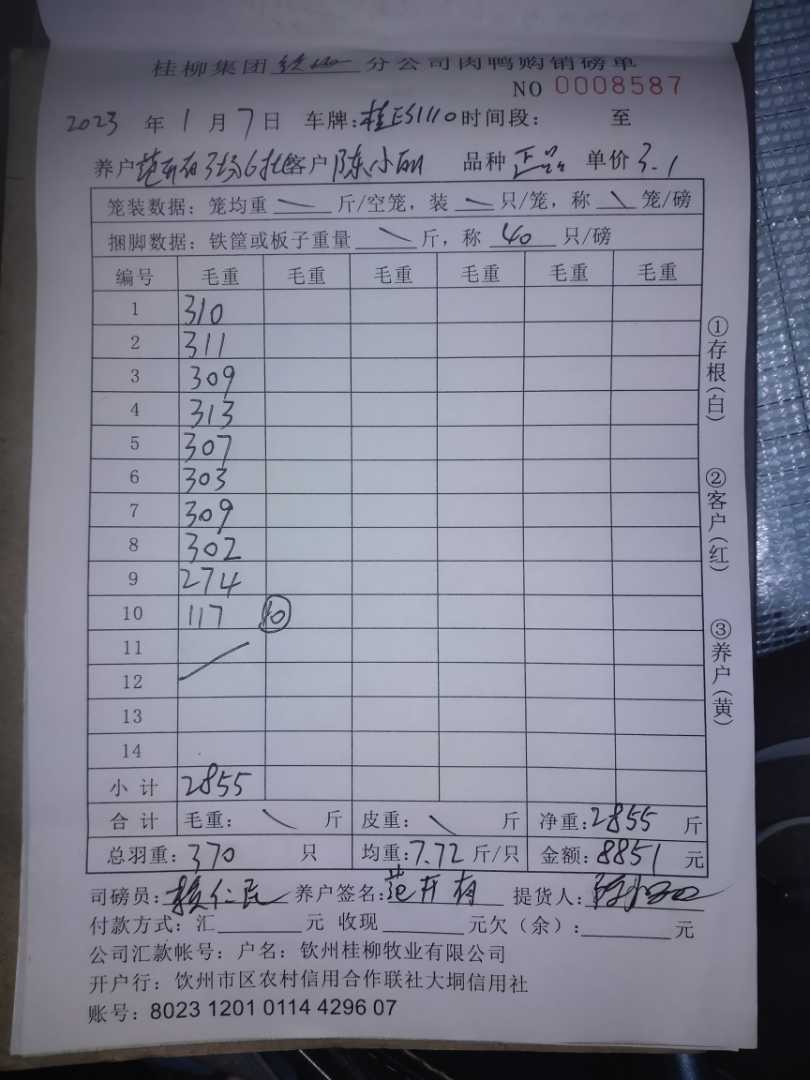 桂柳集团 钦州 分公司肉鸭购销磅单
NO 0008587
2023 年 1 月 7 日 车牌: 桂E51110 时间段: 至
养户 范开有3场6批 客户 陈小丽 品种 正品 单价 3.1
笼装数据: 笼均重 \ 斤/空笼, 装 \ 只/笼, 称 \ 笼/磅
捆脚数据: 铁筐或板子重量 \ 斤, 称 40 只/磅
编号 毛重 毛重 毛重 毛重 毛重 毛重
1 310
2 311
3 309
4 313
5 307
6 303
7 309
8 302
9 274
10 117 10
11
12
13
14
小 计 2855
合 计 毛重: \ 斤 皮重: \ 斤 净重: 2855 斤
总羽重: 370 只 均重: 7.72 斤/只 金额: 8851 元
司磅员: 养户签名: 范开有 提货人:
付款方式: 汇 元 收现 元欠(余): 元
公司汇款帐号: 户名: 钦州桂柳牧业有限公司
开户行: 饮州市区农村信用合作联社大垌信用社
账号: 8023 1201 0114 4296 07
①存根(白)
②客户(红)
③养户(黄)